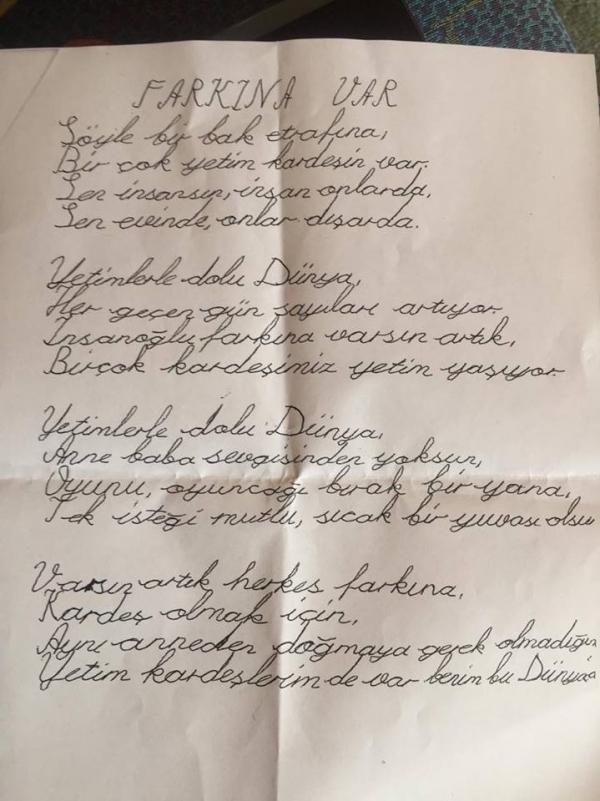 FARKINA VAR
Şöyle bir bak etrafına,
Bir çok yetim kardeşin var.
Sen insansın, insan onlarda,
Sen evinde, onlar dışarda.
Yetimlerle dolu Dünya,
Her geçen gün sayıları artıyor.
İnsanoğlu farkına varsın artık,
Birçok kardeşimiz yetim yaşıyor.
Yetimlerle dolu Dünya,
Anne baba sevgisinden yoksun,
Oyunu, oyuncağı bırak bir yana,
Tek isteği mutlu, sıcak bir yuvası olsun
Varsın artık herkes farkına,
Kardeş olmak için,
Aynı anneden doğmaya gerek olmadığın
Yetim kardeşlerim de var benim bu Dünyada